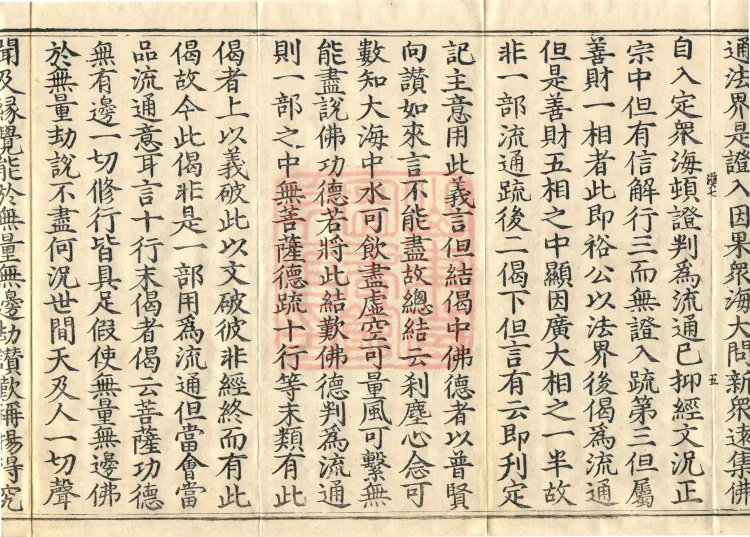 通法界是證入因果衆海大問新衆遠集佛
自入定衆海頓證判為流通已抑經文況正
宗中但有信解行三而無證入疏第三但屬
善財一相者此即裕公以法界後偈為流通
但是善財五相之中顯因廣大相之一半故
非一部流通疏後二偈下但言有云即刋定
記主意用此義言但結偈中佛德者以普賢
向讃如來言不能盡故總結云利塵心念可
數知大海中水可飲盡虛空可量風可繫無
能盡說佛功德若將此結歎佛德判為流通
則一部之中無菩薩德疏十行等末類有此
偈者上以義破此以文破彼非經終而有此
偈故今此偈非是一部用為流通但當會當
品流通意耳言十行末偈者偈云菩薩功德
無有邊一切修行皆具足假使無量無邊佛
於無量劫說不盡何況世間天及人一切聲
聞及緣覺能於無量無邊劫讃歎稱揚得究
五